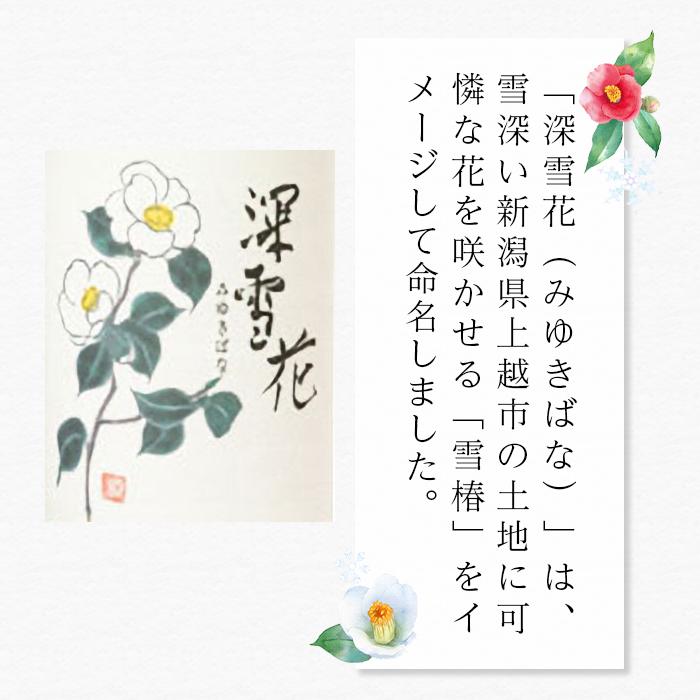 「深雪花（みゆきばな）」は、
雪深い新潟県上越市の土地に可
憐な花を咲かせる「雪椿」をイ
メージして命名しました。
深雪花
みゆきばな